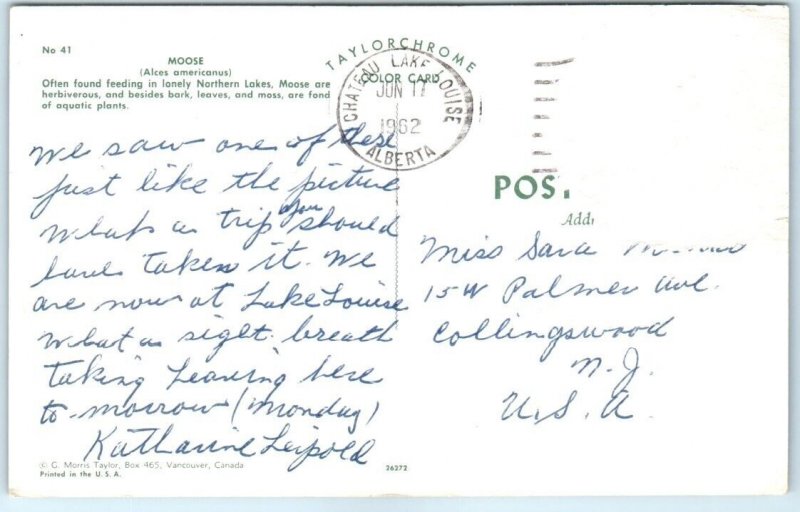 No 41
MOOSE
(Alces americanus)
Often found feeding in lonely Northern Lakes, Moose are
herbiverous, and besides bark, leaves, and moss, are fond
of aquatic plants.
TAYLORCHROME
COLOR CARD
CHATEAU LAKE LOUISE
JUN 17
1962
ALBERTA
We saw one of these
just like the picture
What a trip you should
have taken it. We
are now at Lake Louise
What a sight. breath
taking Leaving here
to-morrow (Monday)
Katharine Leipold
POST
Miss Sara
15 W Palmer Ave.
Collingswood
N. J.
U. S. A.
© G. Morris Taylor, Box 465, Vancouver, Canada
Printed in the U. S. A.
26272